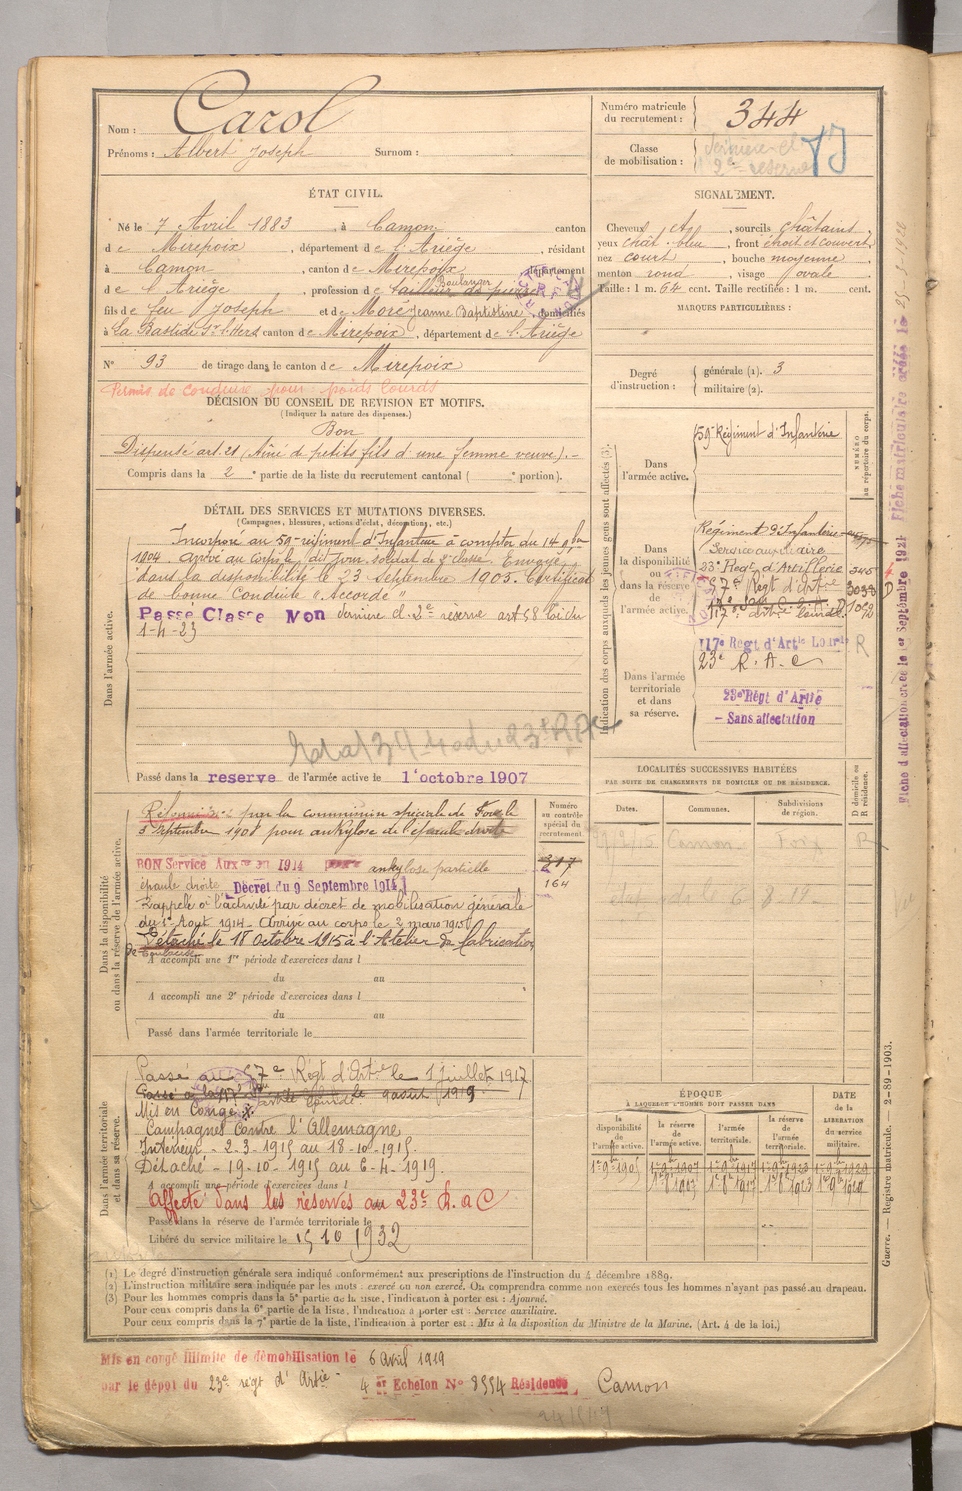 Nom : Carol
Prénoms : Albert Joseph Surnom :
Numéro matricule du recrutement : 344
Classe de mobilisation :
dernière cl
2e réserve
ÉTAT CIVIL.
Né le 7 Avril 1883, à Camon, canton
de Mirepoix, département de l'Ariège, résidant
à Camon, canton de Mirepoix, département
de l'Ariège, profession de tailleur de pierre Boulanger
fils de feu Joseph et de More Jeanne Baptistine, domiciliés
à La Bastide Sr l'Hers canton de Mirepoix, département de l'Ariège
N° 93 de tirage dans le canton de Mirepoix
Permis de conduire pour poids lourds
DÉCISION DU CONSEIL DE REVISION ET MOTIFS.
(Indiquer la nature des dispenses.)
Bon
Dispensé art. 21 (Aîné de petits fils d'une femme veuve). -
Compris dans la 2e partie de la liste du recrutement cantonal ( e portion).
SIGNALEMENT.
Cheveux et, sourcils châtains,
yeux chât. bleu, front étroit et couvert,
nez court, bouche moyenne,
menton rond, visage ovale.
Taille : 1 m. 64 cent. Taille rectifiée : 1 m. cent.
MARQUES PARTICULIÈRES :
Degré d'instruction : générale (1). 3
militaire (2).
DÉTAIL DES SERVICES ET MUTATIONS DIVERSES.
(Campagnes, blessures, actions d'éclat, décorations, etc.)
Dans l'armée active.
Incorporé au 59e régiment d'Infanterie à compter du 14
1904 arrivé au corps le dit jour, soldat de 2e classe. Envoyé
dans la disponibilité le 23 Septembre 1905. Certificat
de bonne Conduite "Accordé"
Passé Classe Mon dernière cl. 2e réserve art 58 loi du
1-4-23
Passé dans la reserve de l'armée active le 1 octobre 1907
Indication des corps auxquels les jeunes gens sont affectés (3).
NUMÉRO au répertoire du corps.
Dans l'armée active.
59e Régiment d'Infanterie
Dans la disponibilité ou dans la réserve de l'armée active.
Régiment d'Infanterie
Service auxiliaire
23e Regt d'Artillerie 345
57e Régt d'Artie 3033 D
117e Artie Lourde. 1052
Dans l'armée territoriale et dans sa réserve.
117e Régt d'Artie Lourde R
23e R. A. C
23e Régt d'Artie
- Sans affectation
Fiche d'affectation créée le 1er Septembre 1921
Fiche matriculaire créée le
LOCALITÉS SUCCESSIVES HABITÉES
PAR SUITE DE CHANGEMENTS DE DOMICILE OU DE RÉSIDENCE.
D domicile ou R résidence.
Dates. Communes. Subdivisions de région.
Camon Foix R
Dans la disponibilité ou dans la réserve de l'armée active.
Numéro au contrôle spécial du recrutement.
Réformé par la commission spéciale de Foix le
5 septembre 1908 pour ankylose de l'épaule droite
BON Service Aux en 1914 ankylose partielle
épaule droite Décret du 9 Septembre 1914
317
164
Rappelé à l'activité par décret de mobilisation générale
du 1er Aout 1914. Arrivé au corps le 2 mars 1915
Détaché le 18 Octobre 1915 à l'Atelier de fabrication
de Toulouse
A accompli une 1re période d'exercices dans l
du au
A accompli une 2e période d'exercices dans l
du au
Passé dans l'armée territoriale le
Dans l'armée territoriale et dans sa réserve.
Passé au 57e Régt d'Artie le 1 juillet 1917
Mis en Congé
Campagnes Contre l'Allemagne
Intérieur - 2-3-1915 au 18-10-1915.
Détaché - 19-10-1915 au 6-4-1919.
A accompli une période d'exercices dans l
Affecté dans les réserves au 23e R.a C
Passé dans la réserve de l'armée territoriale le
Libéré du service militaire le 15 10 1932
ÉPOQUE
À LAQUELLE L'HOMME DOIT PASSER DANS
la disponibilité de l'armée active.
la réserve de l'armée active.
l'armée territoriale.
la réserve de l'armée territoriale.
DATE de la LIBÉRATION du service militaire.
Guerre. — Registre matricule. — 2-89-1903.
(1) Le degré d'instruction générale sera indiqué conformément aux prescriptions de l'instruction du 4 décembre 1889.
(2) L'instruction militaire sera indiquée par les mots : exercé ou non exercé. On comprendra comme non exercés tous les hommes n'ayant pas passé au drapeau.
(3) Pour les hommes compris dans la 5e partie de la liste, l'indication à porter est : Ajourné.
Pour ceux compris dans la 6e partie de la liste, l'indication à porter est : Service auxiliaire.
Pour ceux compris dans la 7e partie de la liste, l'indication à porter est : Mis à la disposition du Ministre de la Marine. (Art. 4 de la loi.)
Mis en congé illimité de démobilisation le 6 Avril 1919
par le dépot du 23e régt d'Artie 4 er Echelon N° 8554 Résidence Camon